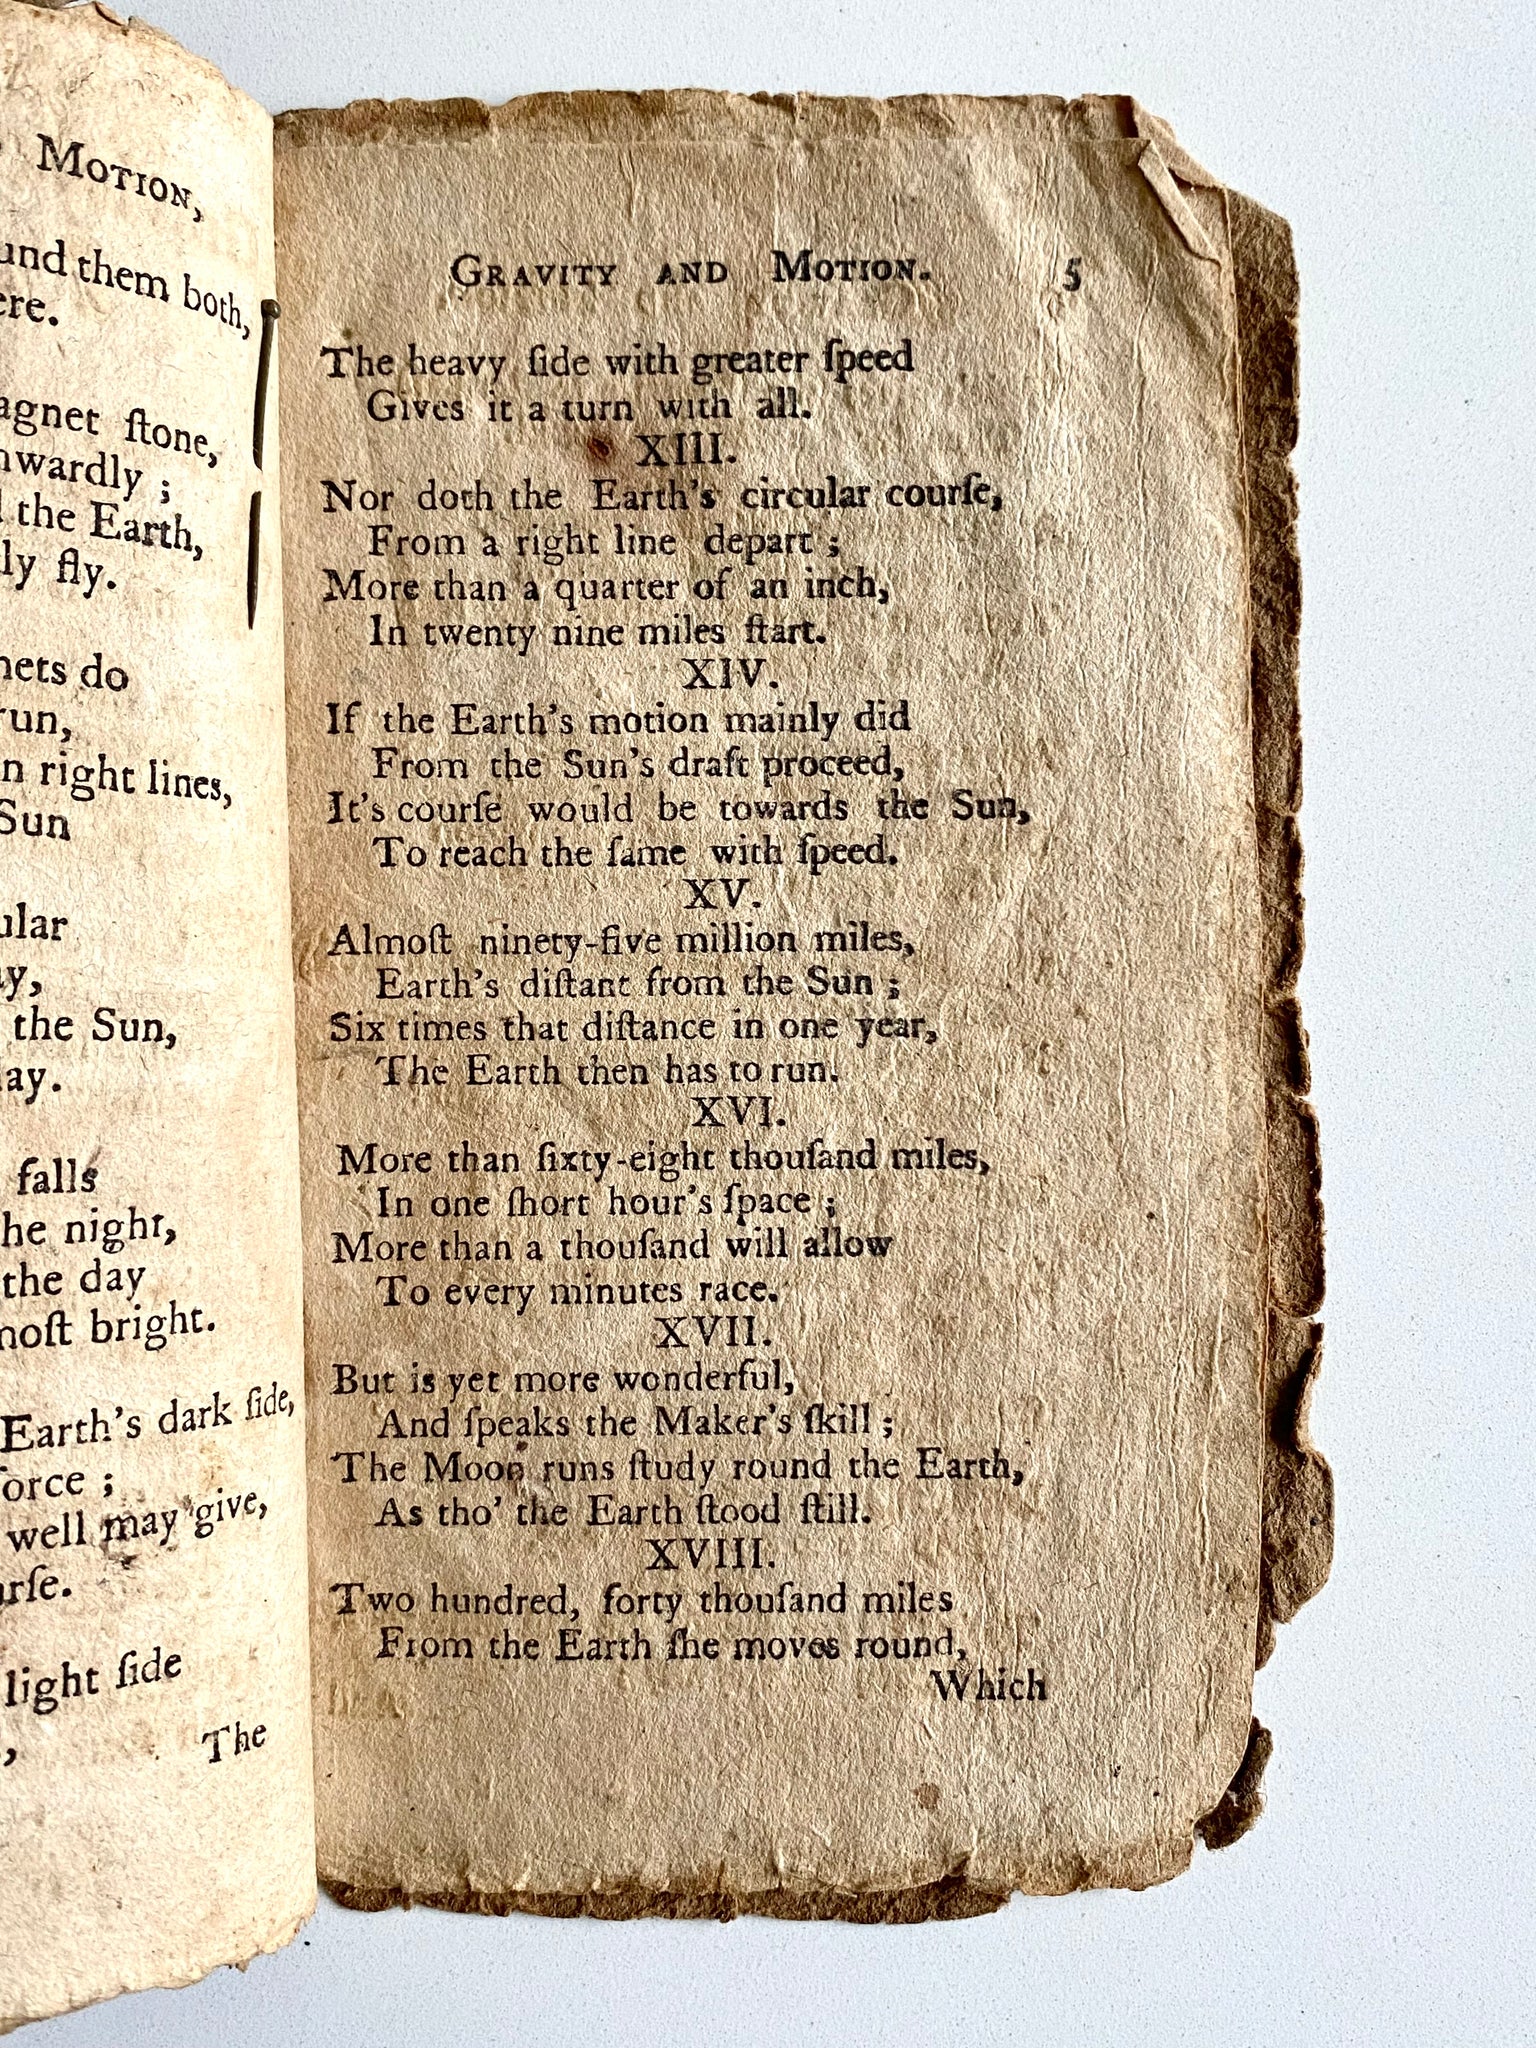 MOTION,
und them both,
ere.
agnet ſtone,
nwardly ;
the Earth,
ly fly.
nets do
run,
n right lines,
Sun
ular
y,
the Sun,
ay.
falls
he night,
the day
moſt bright.
Earth's dark ſide,
force ;
well may give,
urſe.
light ſide
The
GRAVITY AND MOTION. 5
The heavy ſide with greater ſpeed
Gives it a turn with all.
XIII.
Nor doth the Earth's circular courſe,
From a right line depart ;
More than a quarter of an inch,
In twenty nine miles ſtart.
XIV.
If the Earth's motion mainly did
From the Sun's draft proceed,
It's courſe would be towards the Sun,
To reach the ſame with ſpeed.
XV.
Almoſt ninety-five million miles,
Earth's diſtant from the Sun ;
Six times that diſtance in one year,
The Earth then has to run.
XVI.
More than ſixty-eight thouſand miles,
In one ſhort hour's ſpace ;
More than a thouſand will allow
To every minutes race.
XVII.
But is yet more wonderful,
And ſpeaks the Maker's ſkill ;
The Moon runs ſtudy round the Earth,
As tho' the Earth ſtood ſtill.
XVIII.
Two hundred, forty thouſand miles
From the Earth ſhe moves round,
Which